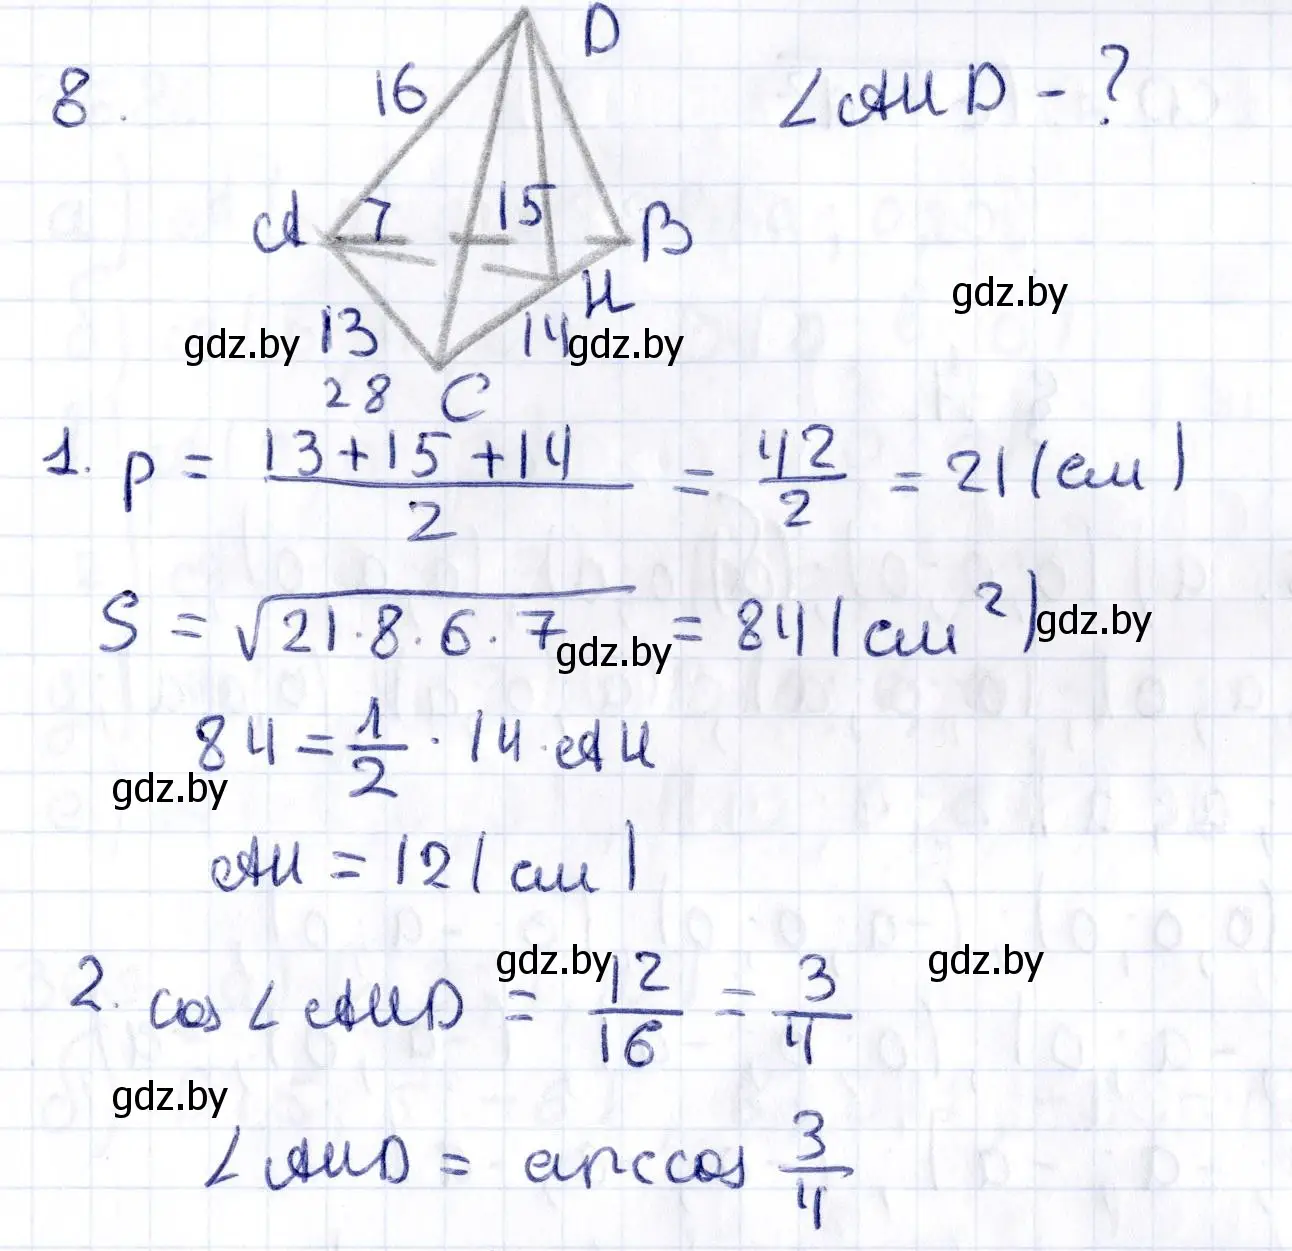 8.
D
16
∠AHD - ?
A
7
15
B
H
13
14
28
C
gdz.by
gdz.by
gdz.by
1. p = (13+15+14)/2 = 42/2 = 21 (см)
S = √(21·8·6·7) = 84 (см²)
gdz.by
gdz.by
84 = 1/2 · 14 · AH
gdz.by
AH = 12 (см)
gdz.by
gdz.by
2. cos∠AHD = 12/16 = 3/4
gdz.by
∠AHD = arccos 3/4